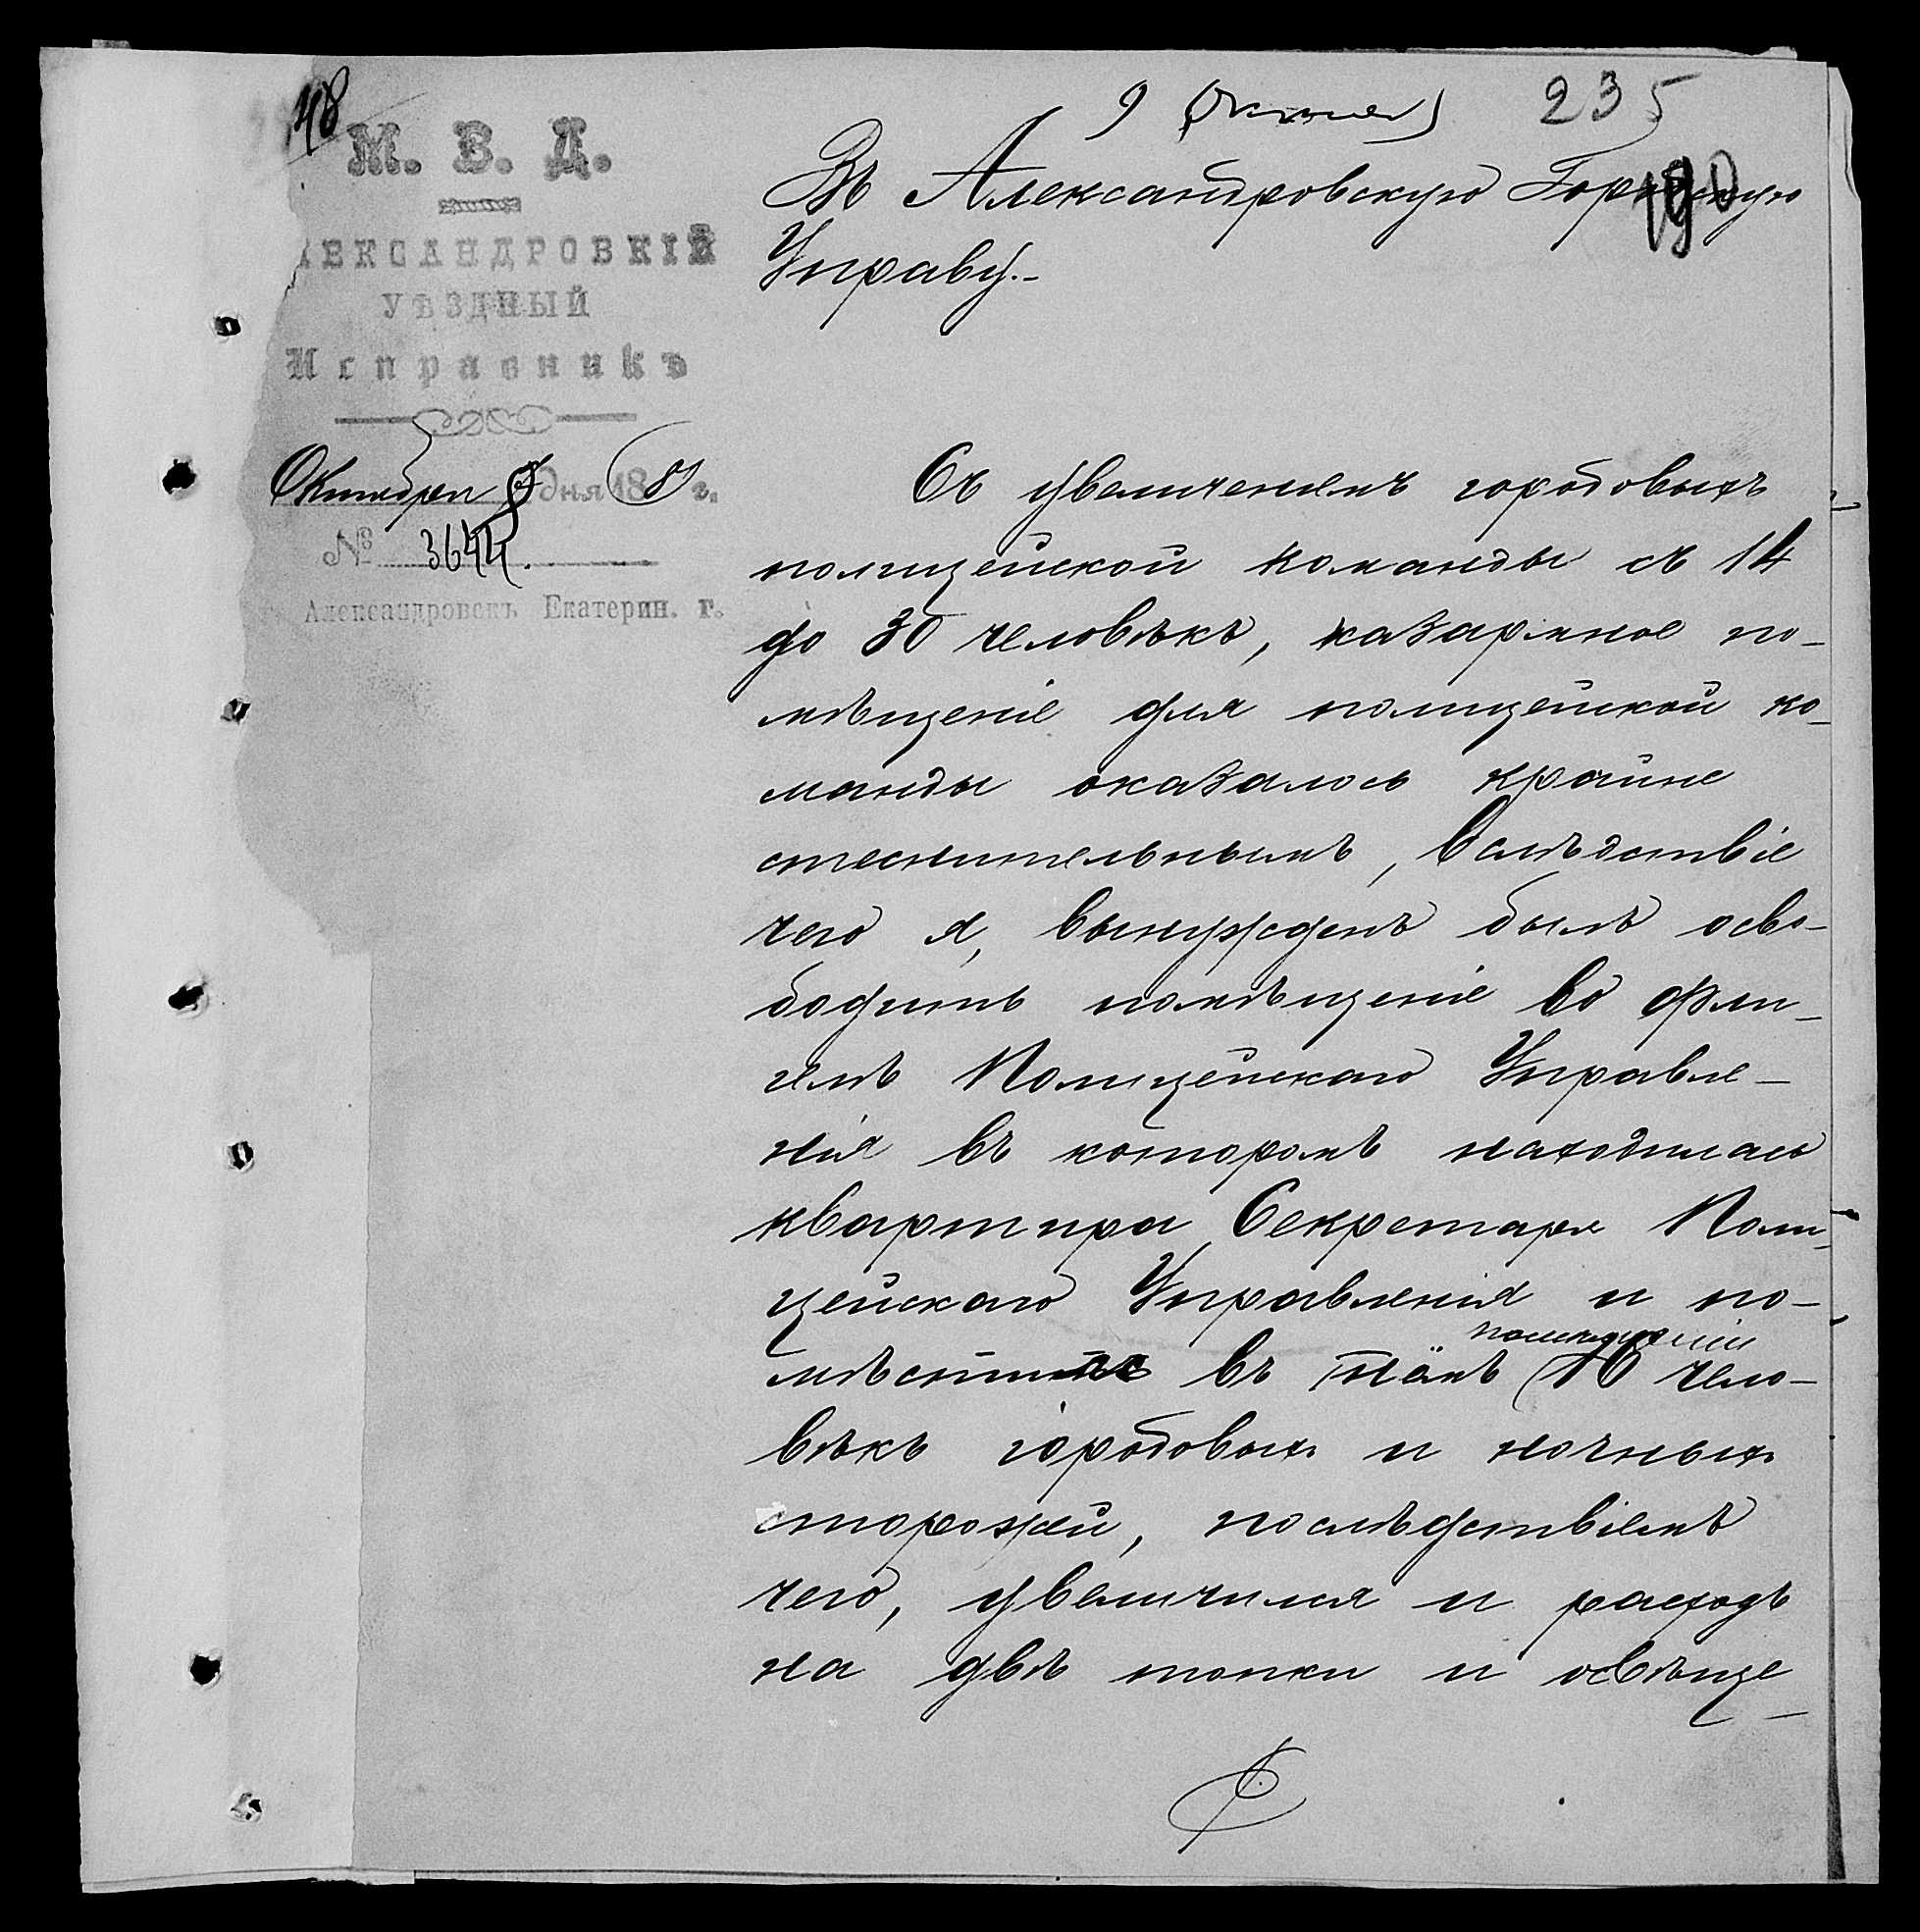 48
М. В. Д.
АЛЕКСАНДРОВКІЙ
УѢЗДНЫЙ
Исправникъ
Октября дня 18 г.
№ 3644.
Александровскъ Екатерин. г.
9 235
190
Въ Александровскую Городскую
Управу.-
Съ увеличеніемъ городовыхъ
полицейской команды съ 14
до 30 человѣкъ, казарменое по-
мѣщеніе для полицейской ко-
манды оказалось крайне
стеснительнымъ, вслѣдствіе
чего я, вынужденъ былъ осво-
бодить помѣщеніе во фли-
гелѣ Полицейскаго Управле-
нія въ которомъ находилась
квартира Секретаря Поли-
цейскаго Управленія и по-
помещеніи
мѣстить въ 16 чело-
вѣкъ городовыхъ и ночныхъ
сторожей, послѣдствіемъ
чего, увеличился и расходъ
на двѣ топки и освѣще-